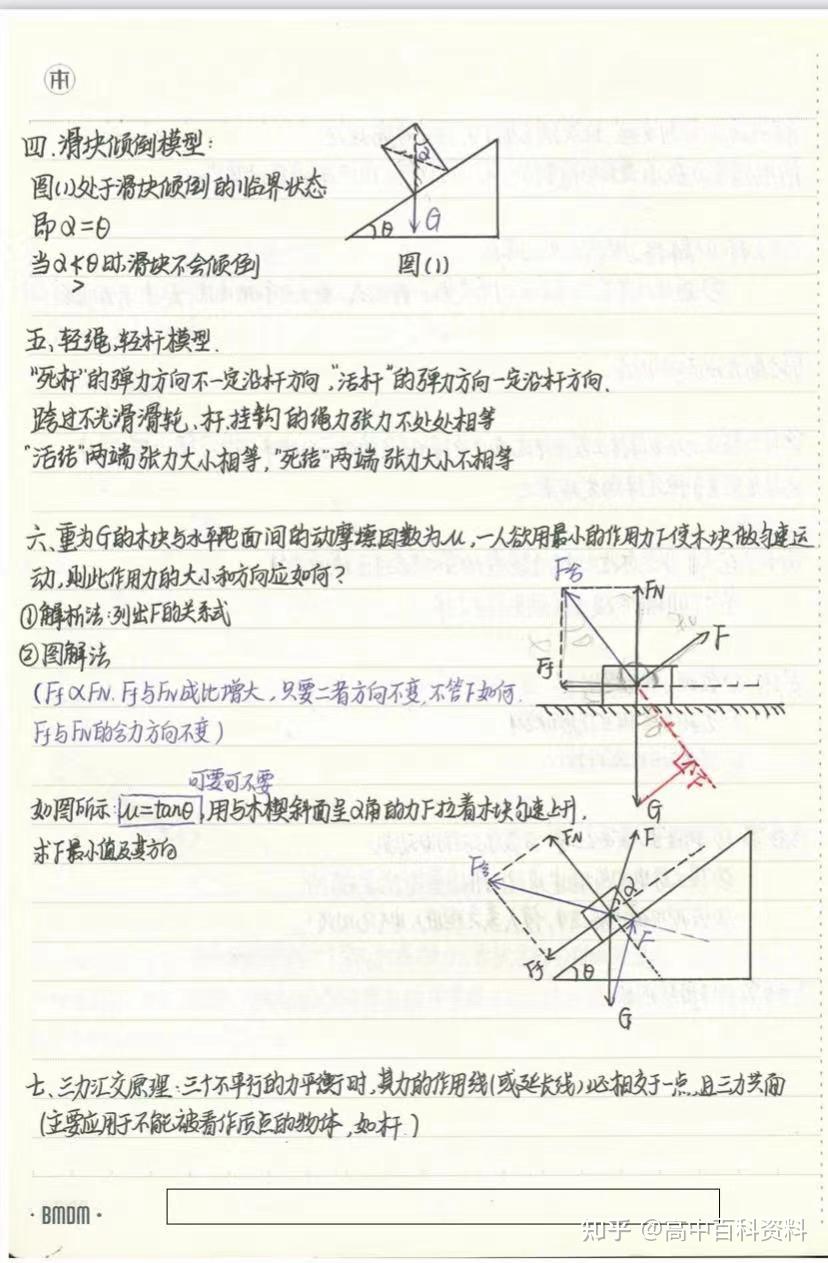 本
四.滑块倾倒模型:
图(1)处于滑块倾倒的临界状态
即α=θ
当α<θ时,滑块不会倾倒
>
α
θ
G
图(1)
五、轻绳,轻杆模型.
"死杆"的弹力方向不一定沿杆方向,"活杆"的弹力方向一定沿杆方向.
跨过不光滑滑轮、杆、挂钩的绳力张力不处处相等
"活结"两端张力大小相等,"死结"两端张力大小不相等
六、重为G的木块与水平地面间的动摩擦因数为μ,一人欲用最小的作用力F使木块做匀速运
动,则此作用力的大小和方向应如何?
①解析法:列出F的关系式
②图解法
(Ff∝FN. Ff与FN成比增大,只要二者方向不变,不管F如何.
Ff与FN的合力方向不变)
F合
FN
F
Ff
G
可要可不要
如图所示:μ=tanθ,用与木楔斜面呈α角的力F拉着木块匀速上升.
求F最小值及其方向
FN
F
F合
α
F
Ff
θ
G
七、三力汇交原理:三个不平行的力平衡时,其力的作用线(或延长线)必相交于一点,且三力共面
(主要应用于不能被看作质点的物体,如杆.)
BMDM
知乎 @高中百科资料